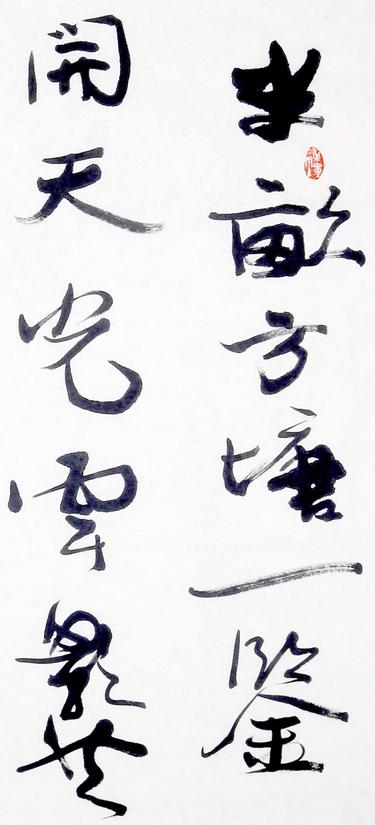 半畝方塘一鑒
開天光雲影共